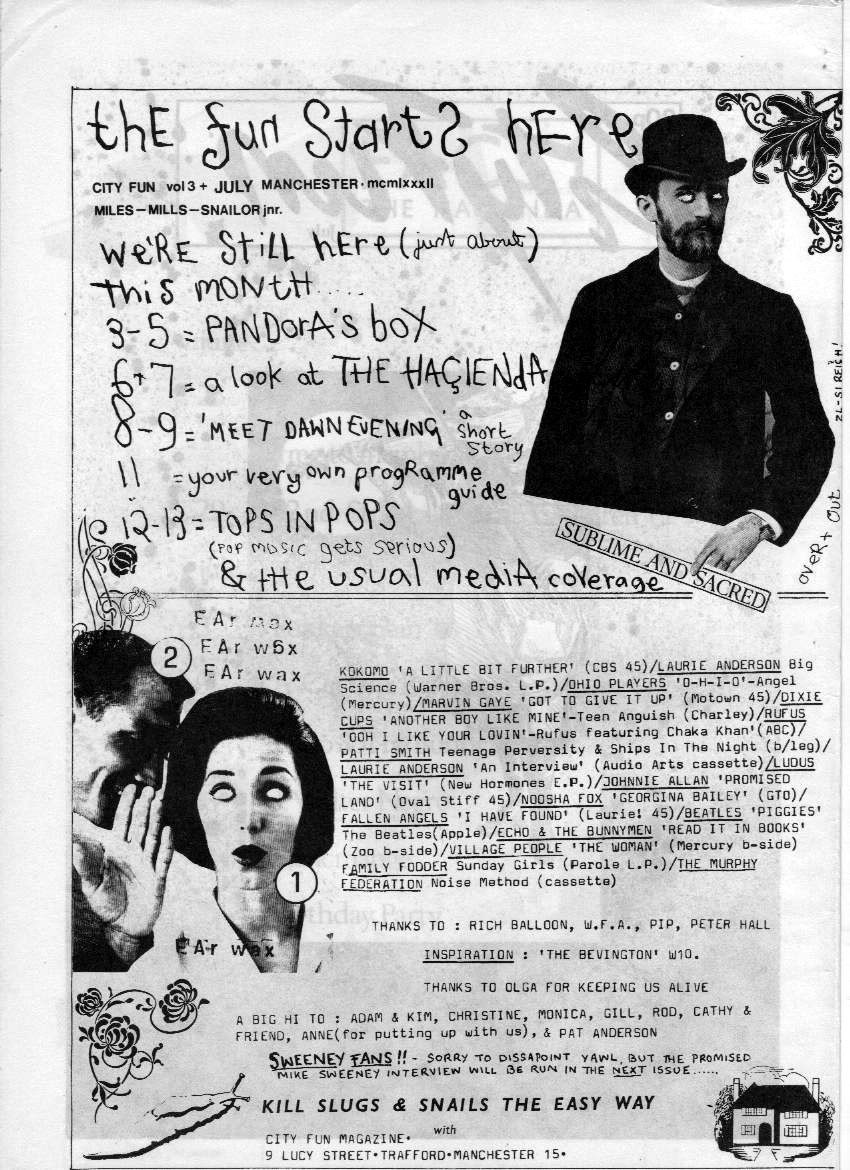 thE fun StartS hEre
CITY FUN vol 3 + JULY MANCHESTER · mcmlxxxII
MILES – MILLS – SNAILOR jnr.
WE'RE STiLL hEre (just about)
this MONtH.....
3-5 = PANDorA's boX
6+7 = a look at THE HAÇIENdA
8-9 = 'MEET DAWN EVENING' a short story
11 = your very own progRamme guide
12-13 = TOPS IN POPS
(POP MUSIC gets serious)
& tHe usual mediA coverage
SUBLIME AND SACRED
oveR + OUt
EAr wax
EAr wax
EAr wax
2
1
EAr wax
KOKOMO 'A LITTLE BIT FURTHER' (CBS 45)/LAURIE ANDERSON Big
Science (Warner Bros. L.P.)/OHIO PLAYERS 'O-H-I-O'-Angel
(Mercury)/MARVIN GAYE 'GOT TO GIVE IT UP' (Motown 45)/DIXIE
CUPS 'ANOTHER BOY LIKE MINE'-Teen Anguish (Charley)/RUFUS
'OOH I LIKE YOUR LOVIN'-Rufus featuring Chaka Khan'(ABC)/
PATTI SMITH Teenage Perversity & Ships In The Night (b/leg)/
LAURIE ANDERSON 'An Interview' (Audio Arts cassette)/LUDUS
'THE VISIT' (New Hormones E.P.)/JOHNNIE ALLAN 'PROMISED
LAND' (Oval Stiff 45)/NOOSHA FOX 'GEORGINA BAILEY' (GTO)/
FALLEN ANGELS 'I HAVE FOUND' (Laurie! 45)/BEATLES 'PIGGIES'
The Beatles(Apple)/ECHO & THE BUNNYMEN 'READ IT IN BOOKS'
(Zoo b-side)/VILLAGE PEOPLE 'THE WOMAN' (Mercury b-side)
FAMILY FODDER Sunday Girls (Parole L.P.)/THE MURPHY
FEDERATION Noise Method (cassette)
THANKS TO : RICH BALLOON, W.F.A., PIP, PETER HALL
INSPIRATION : 'THE BEVINGTON' W10.
THANKS TO OLGA FOR KEEPING US ALIVE
A BIG HI TO : ADAM & KIM, CHRISTINE, MONICA, GILL, ROD, CATHY &
FRIEND, ANNE(for putting up with us), & PAT ANDERSON
SWEENEY FANS!! - SORRY TO DISSAPOINT YAWL, BUT THE PROMISED
MIKE SWEENEY INTERVIEW WILL BE RUN IN THE NEXT ISSUE......
KILL SLUGS & SNAILS THE EASY WAY
with
CITY FUN MAGAZINE·
9 LUCY STREET·TRAFFORD·MANCHESTER 15·